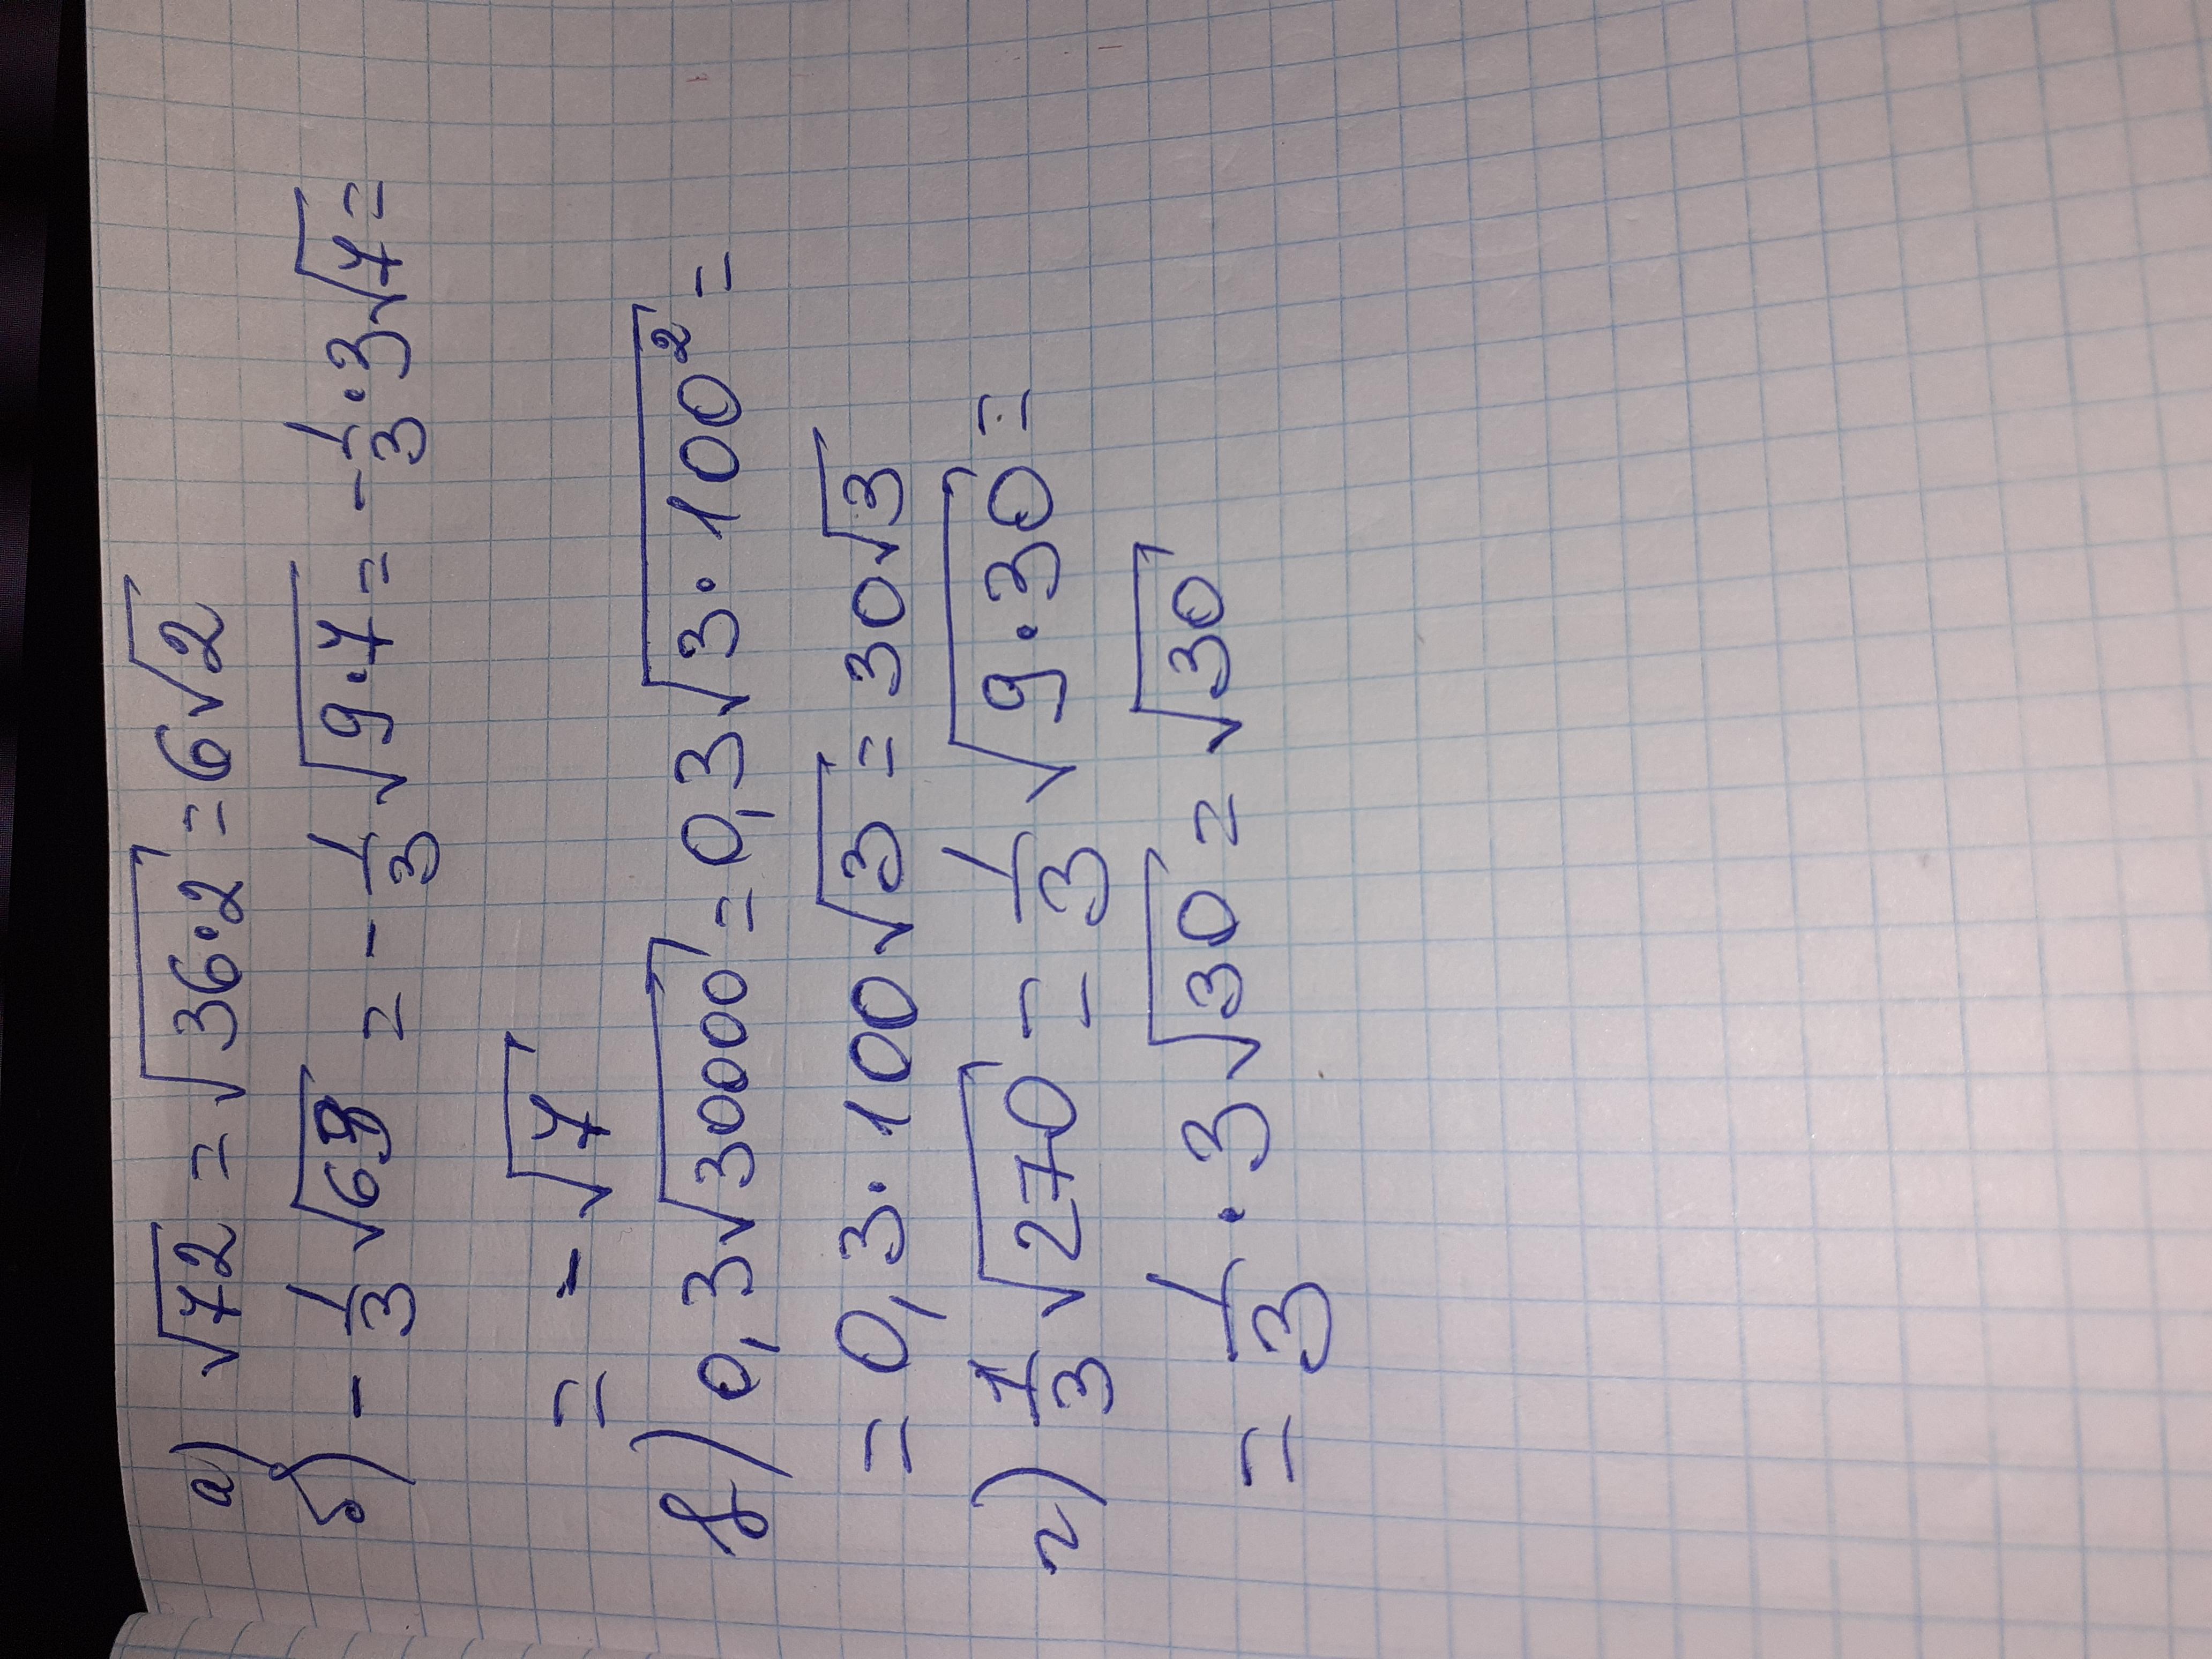 а) √72 = √36·2 = 6√2
б) -1/3 √63 = -1/3 √9·7 = -1/3·3√7 =
= -√7
в) 0,3√30000 = 0,3√3·100² =
= 0,3·100√3 = 30√3
г) 1/3 √270 = 1/3 √9·30 =
= 1/3·3√30 = √30